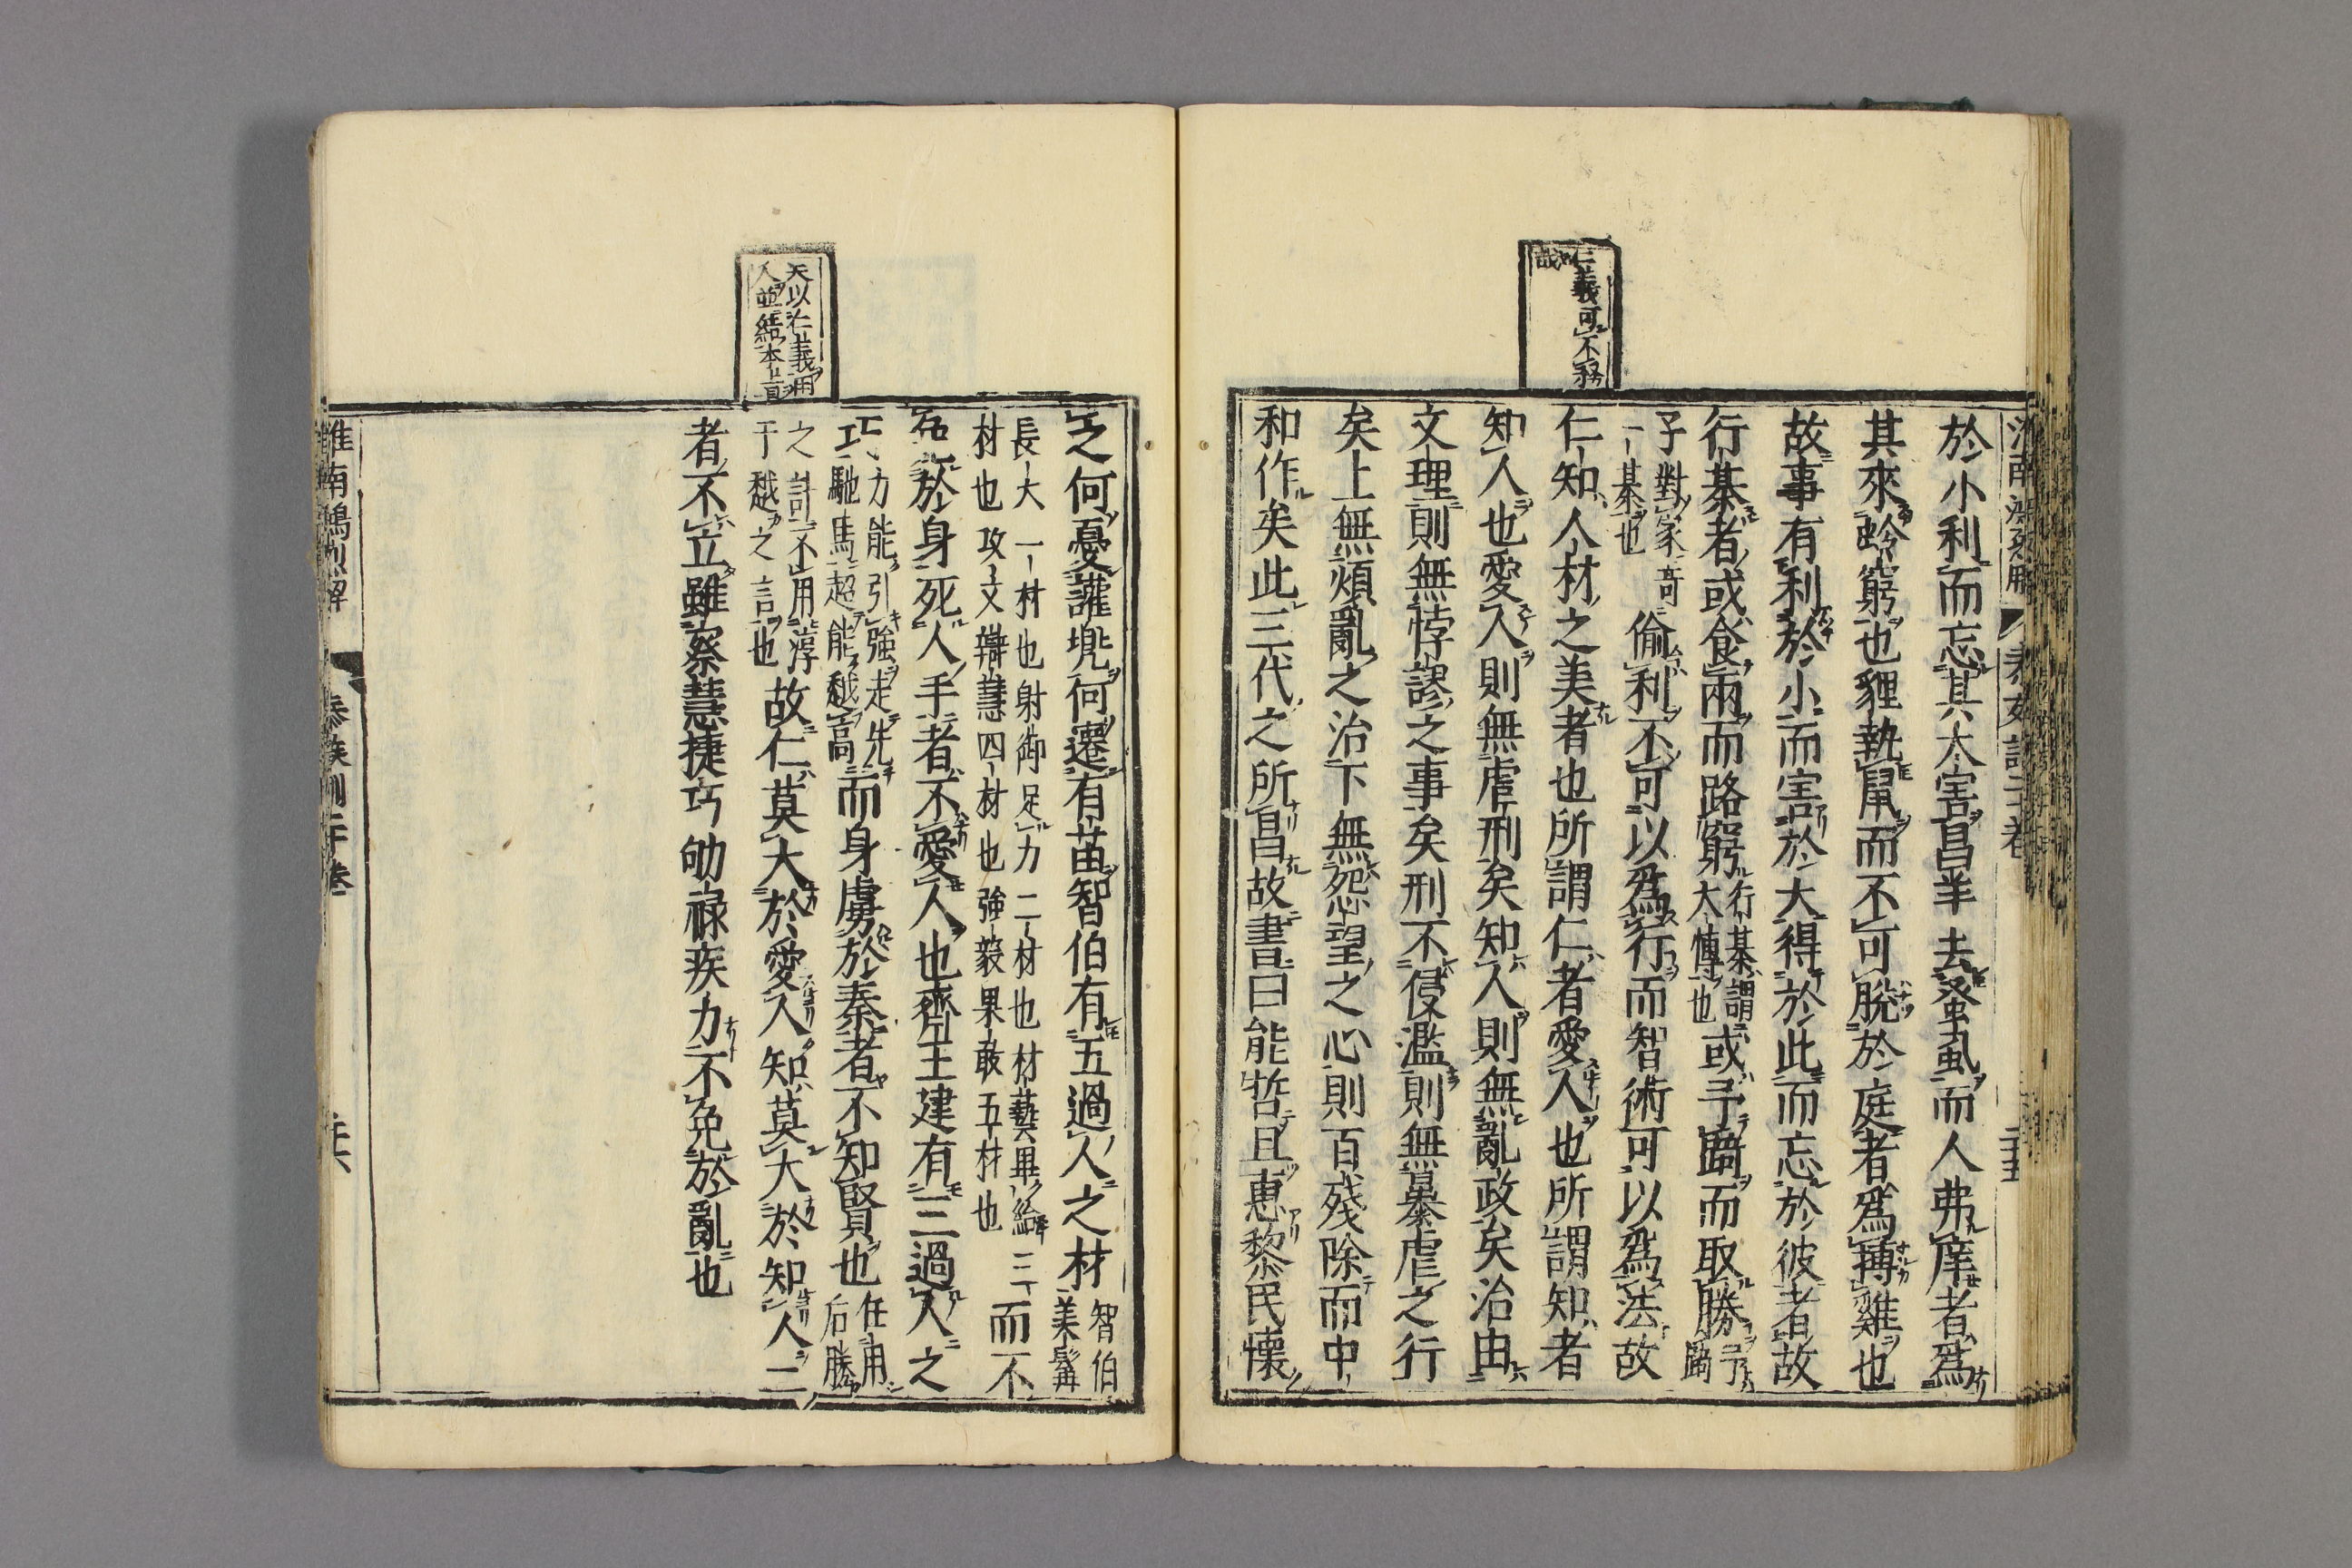 仁義可不務
哉
於小利而忘其大害昌羊去蚤虱而人弗庠者爲
其來蛉窮也貍執鼠而不可脫於庭者爲搏雞也
故事有利於小而害於大得於此而忘於彼者故
行棊者或食兩而路窮行棊謂大博也或予踦而取勝予踦
子對家奇一棊也偷利不可以爲行而智術可以爲法故
仁知人材之美者也所謂仁者愛人也所謂知者
知人也愛人則無虐刑矣知人則無亂政矣治由
文理則無悖謬之事矣刑不侵濫則無暴虐之行
矣上無煩亂之治下無怨望之心則百殘除而中
和作矣此三代之所昌故書曰能哲且惠黎民懷
天以仁義用
人並結本旨
之何憂讙兠何遷有苗智伯有五過人之材智伯美髯
長大一材也射御足力二材也材藝畢給三材也攻文辯慧四材也強毅果敢五材也而不
免於身死人手者不愛人也齊王建有三過人之
巧力能引強走先馳馬超能越高而身虜於秦者不知賢也任用后勝
之計不用淳于越之言也故仁莫大於愛人知莫大於知人二
者不立雖察慧捷巧劬祿疾力不免於亂也
淮南鴻烈解 泰族訓二十卷